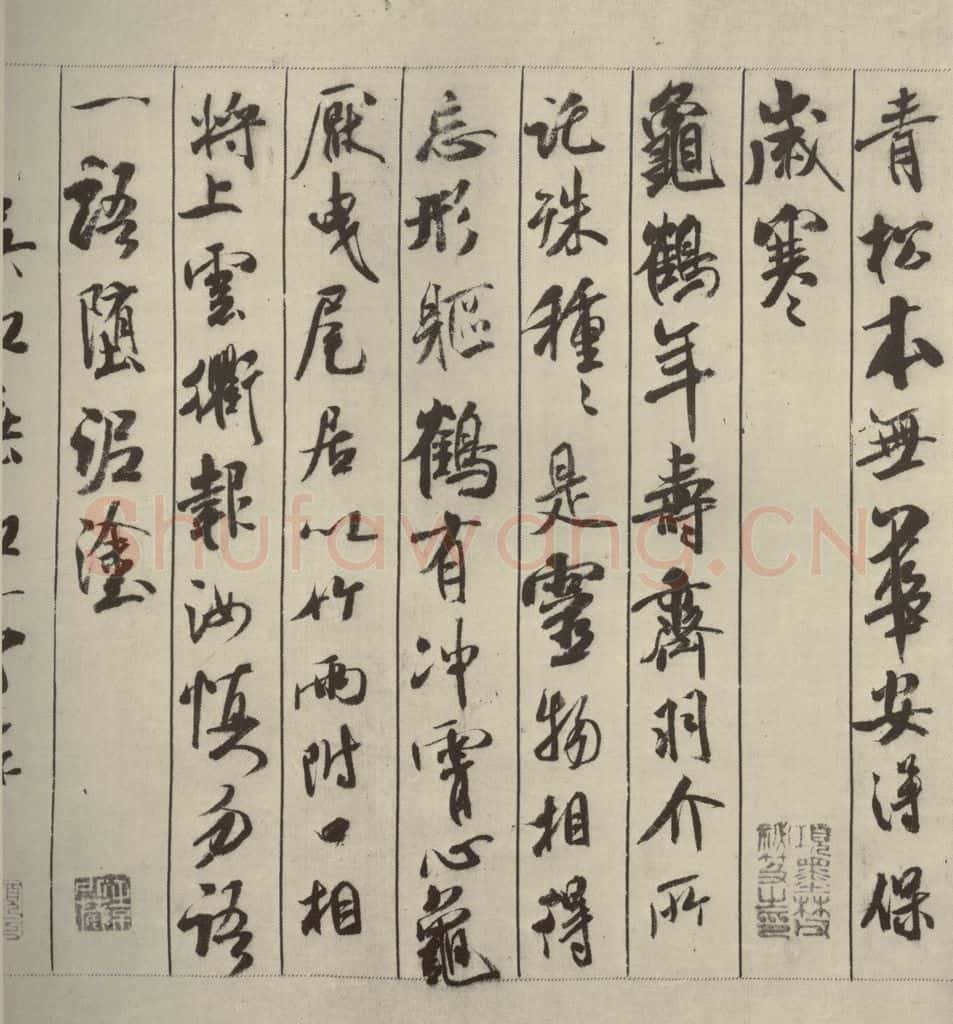 青松本無華安得保
歲寒
龜鶴年壽齊羽介所
託殊種〻是靈物相得
忘形軀鶴有冲霄心龜
厭曳尾居以竹兩附口相
將上雲衢報汝慎勿語
一語墮泥塗
項墨林父
秘笈之印
Shufawang.CN